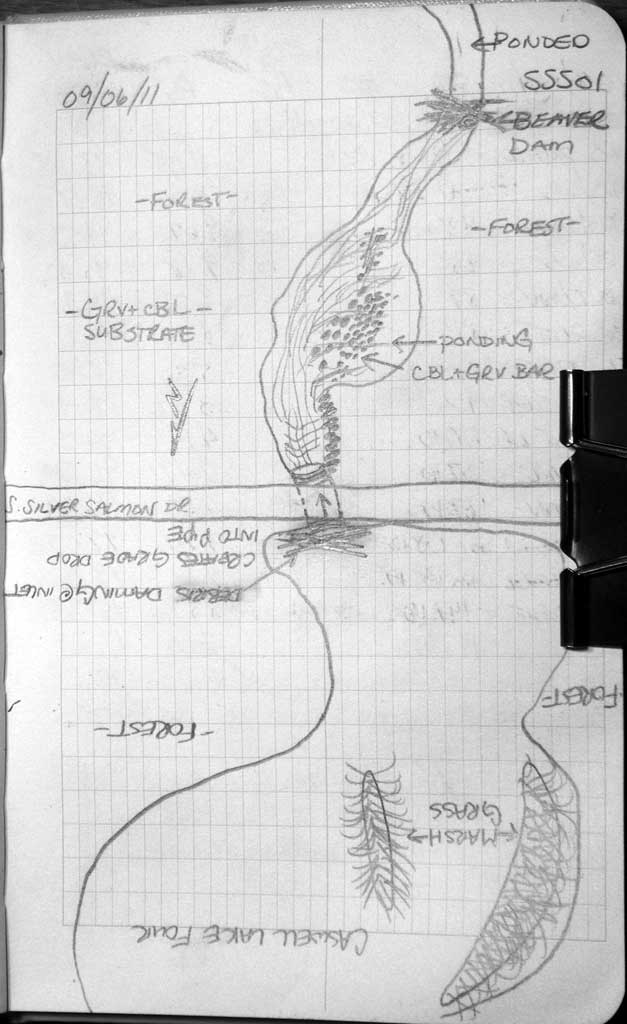 PONDED
SSS01
09/06/11
BEAVER
DAM
-FOREST-
-FOREST-
-GRV+CBL-
SUBSTRATE
PONDING
CBL+GRV BAR
S. SILVER SALMON DR.
DEBRIS DAMING @ INLET
CREATES GRADE DROP
INTO PIPE
FOREST-
-FOREST-
MARSH
GRASS
CASWELL LAKE FOUR